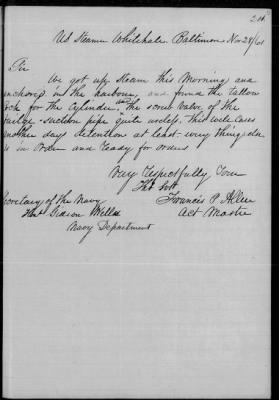 211
US Steamer Whitehale Baltimore Nov 28/61
Sir
We got up Steam this Morning and
anchored in the harbour, and found the tallow
cock for the Cylinder and the scrub valve of the
bailge suction pipe quite useless. this will cause
another days detention at least. every thing else
is in Order and ready for orders
Very Respectfully Your
Obt Svt
Francis P Allen
Act Master
Secretary of the Navy
Hon Gideon Welles
Navy Department